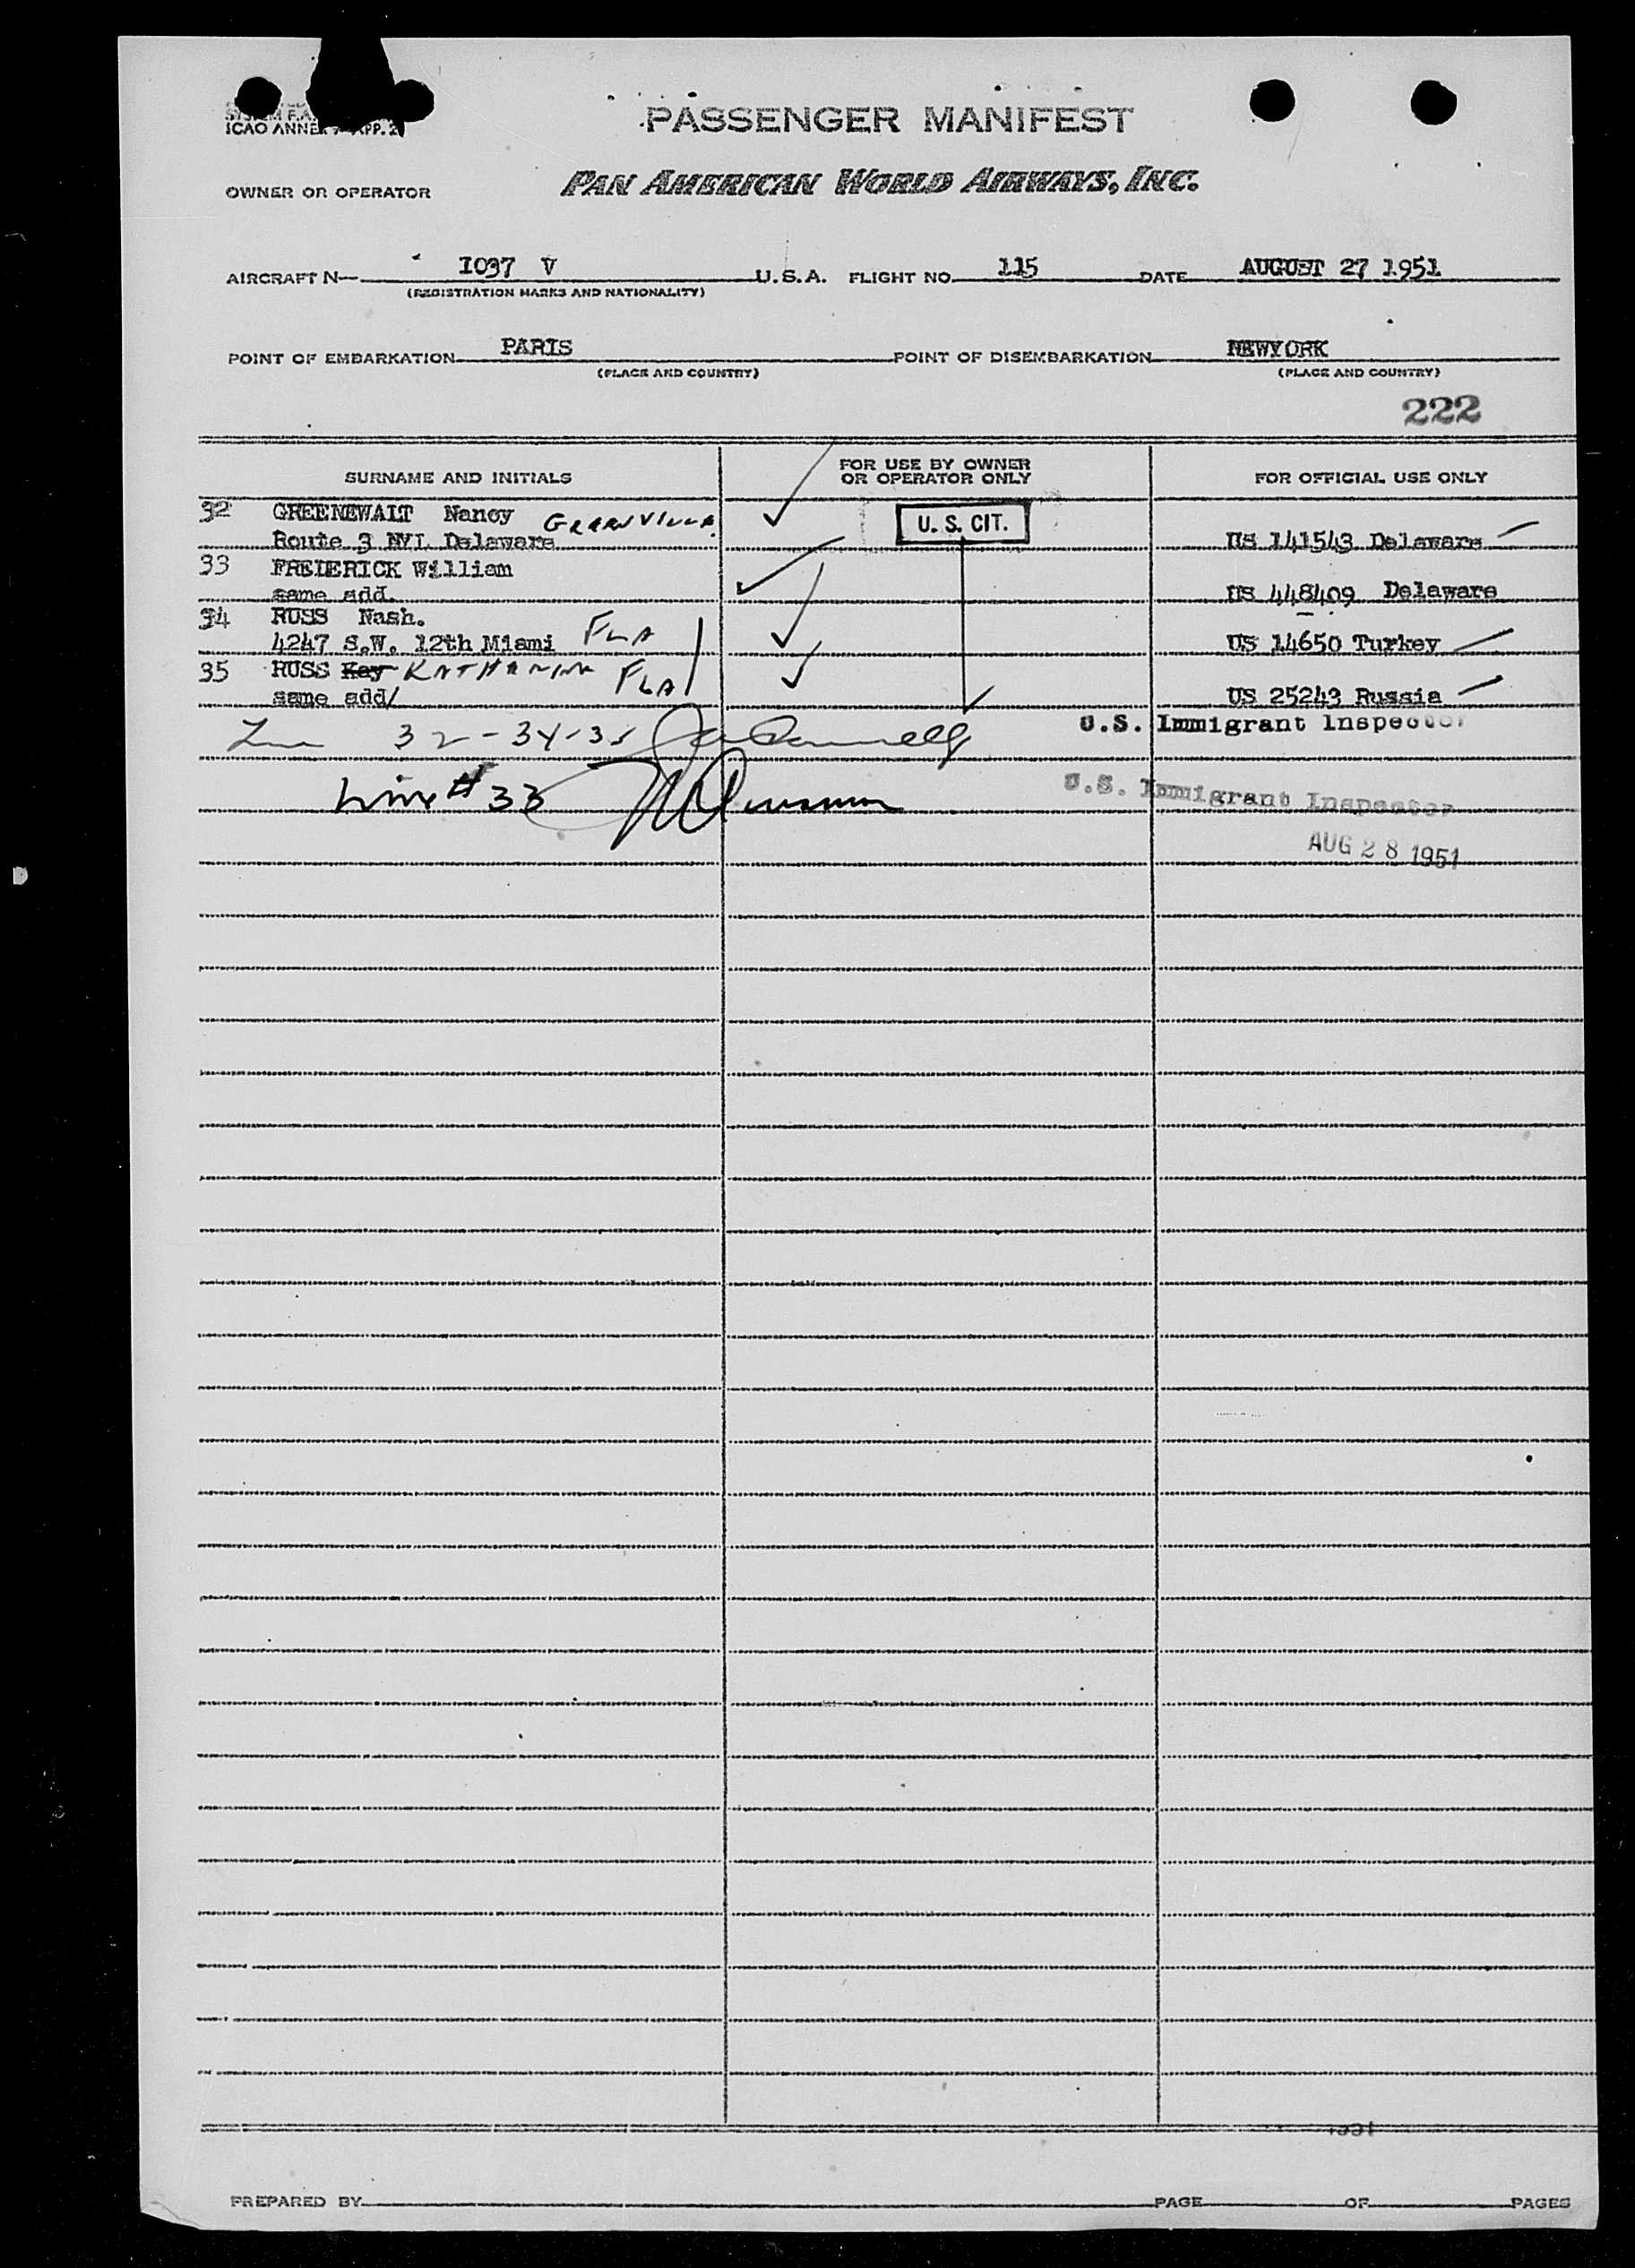 ICAO ANNEX
PASSENGER MANIFEST
OWNER OR OPERATOR PAN AMERICAN WORLD AIRWAYS, INC.
AIRCRAFT N— 1037 V U.S.A. FLIGHT NO. 115 DATE AUGUST 27 1951
(REGISTRATION MARKS AND NATIONALITY)
POINT OF EMBARKATION PARIS POINT OF DISEMBARKATION NEWYORK
(PLACE AND COUNTRY) (PLACE AND COUNTRY)
222
SURNAME AND INITIALS FOR USE BY OWNER OR OPERATOR ONLY FOR OFFICIAL USE ONLY
32 GREENEWALT Nancy GREENVILLE U. S. CIT.
Route 3 Delaware US 141543 Delaware
33 FREDERICK William
same add. US 448409 Delaware
34 RUSS Nash.
4247 S.W. 12th Miami FLA US 14650 Turkey
35 RUSS Kay KATHARINE FLA
same add/ US 25243 Russia
32-34-35 U.S. Immigrant Inspector
Line # 33 U.S. Immigrant Inspector
AUG 28 1951
PREPARED BY PAGE OF PAGES